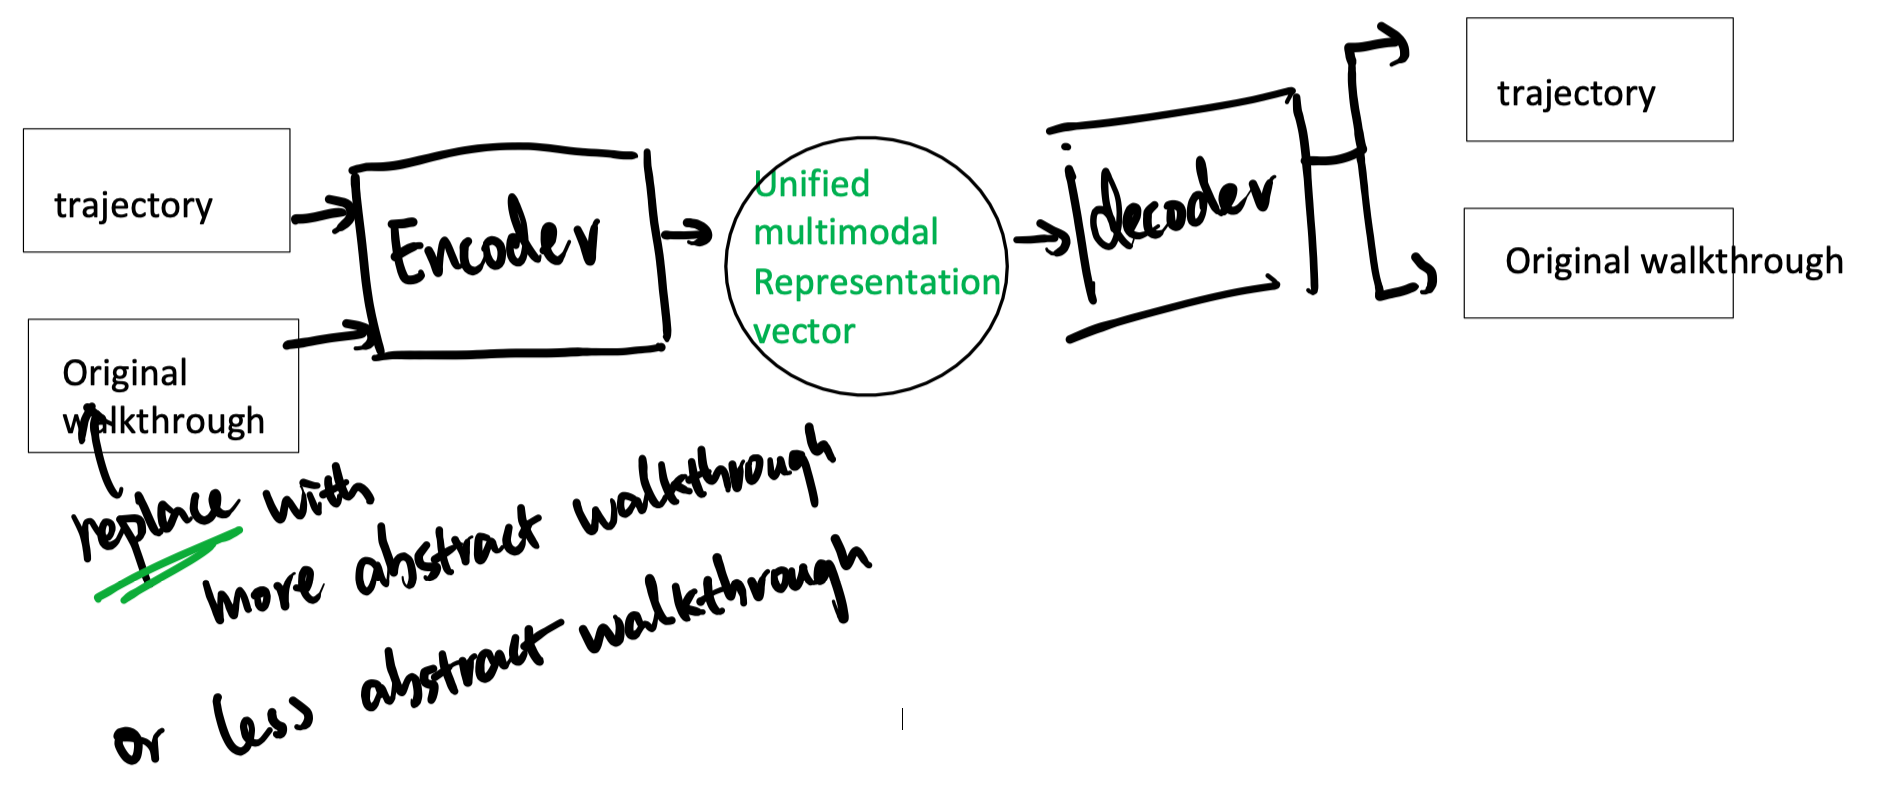 trajectory
Original
walkthrough
Encoder
Unified
multimodal
Representation
vector
decoder
trajectory
Original walkthrough
replace with
more abstract walkthrough
or less abstract walkthrough